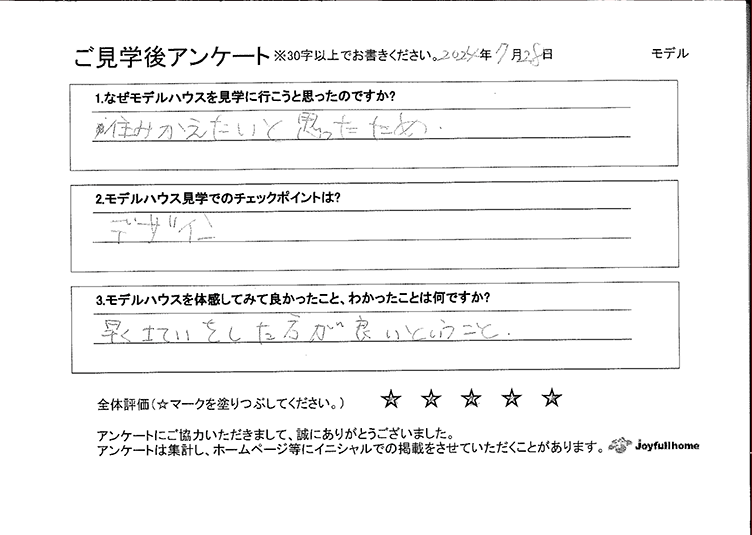 ご見学後アンケート ※30字以上でお書きください。2024年7月28日 モデル
1.なぜモデルハウスを見学に行こうと思ったのですか?
住みかえたいと思ったため.
2.モデルハウス見学でのチェックポイントは?
デザイン
3.モデルハウスを体感してみて良かったこと、わかったことは何ですか?
早く した方が良いということ.
全体評価(☆マークを塗りつぶしてください。) ☆ ☆ ☆ ☆ ☆
アンケートにご協力いただきまして、誠にありがとうございました。
アンケートは集計し、ホームページ等にイニシャルでの掲載をさせていただくことがあります。 Joyfullhome